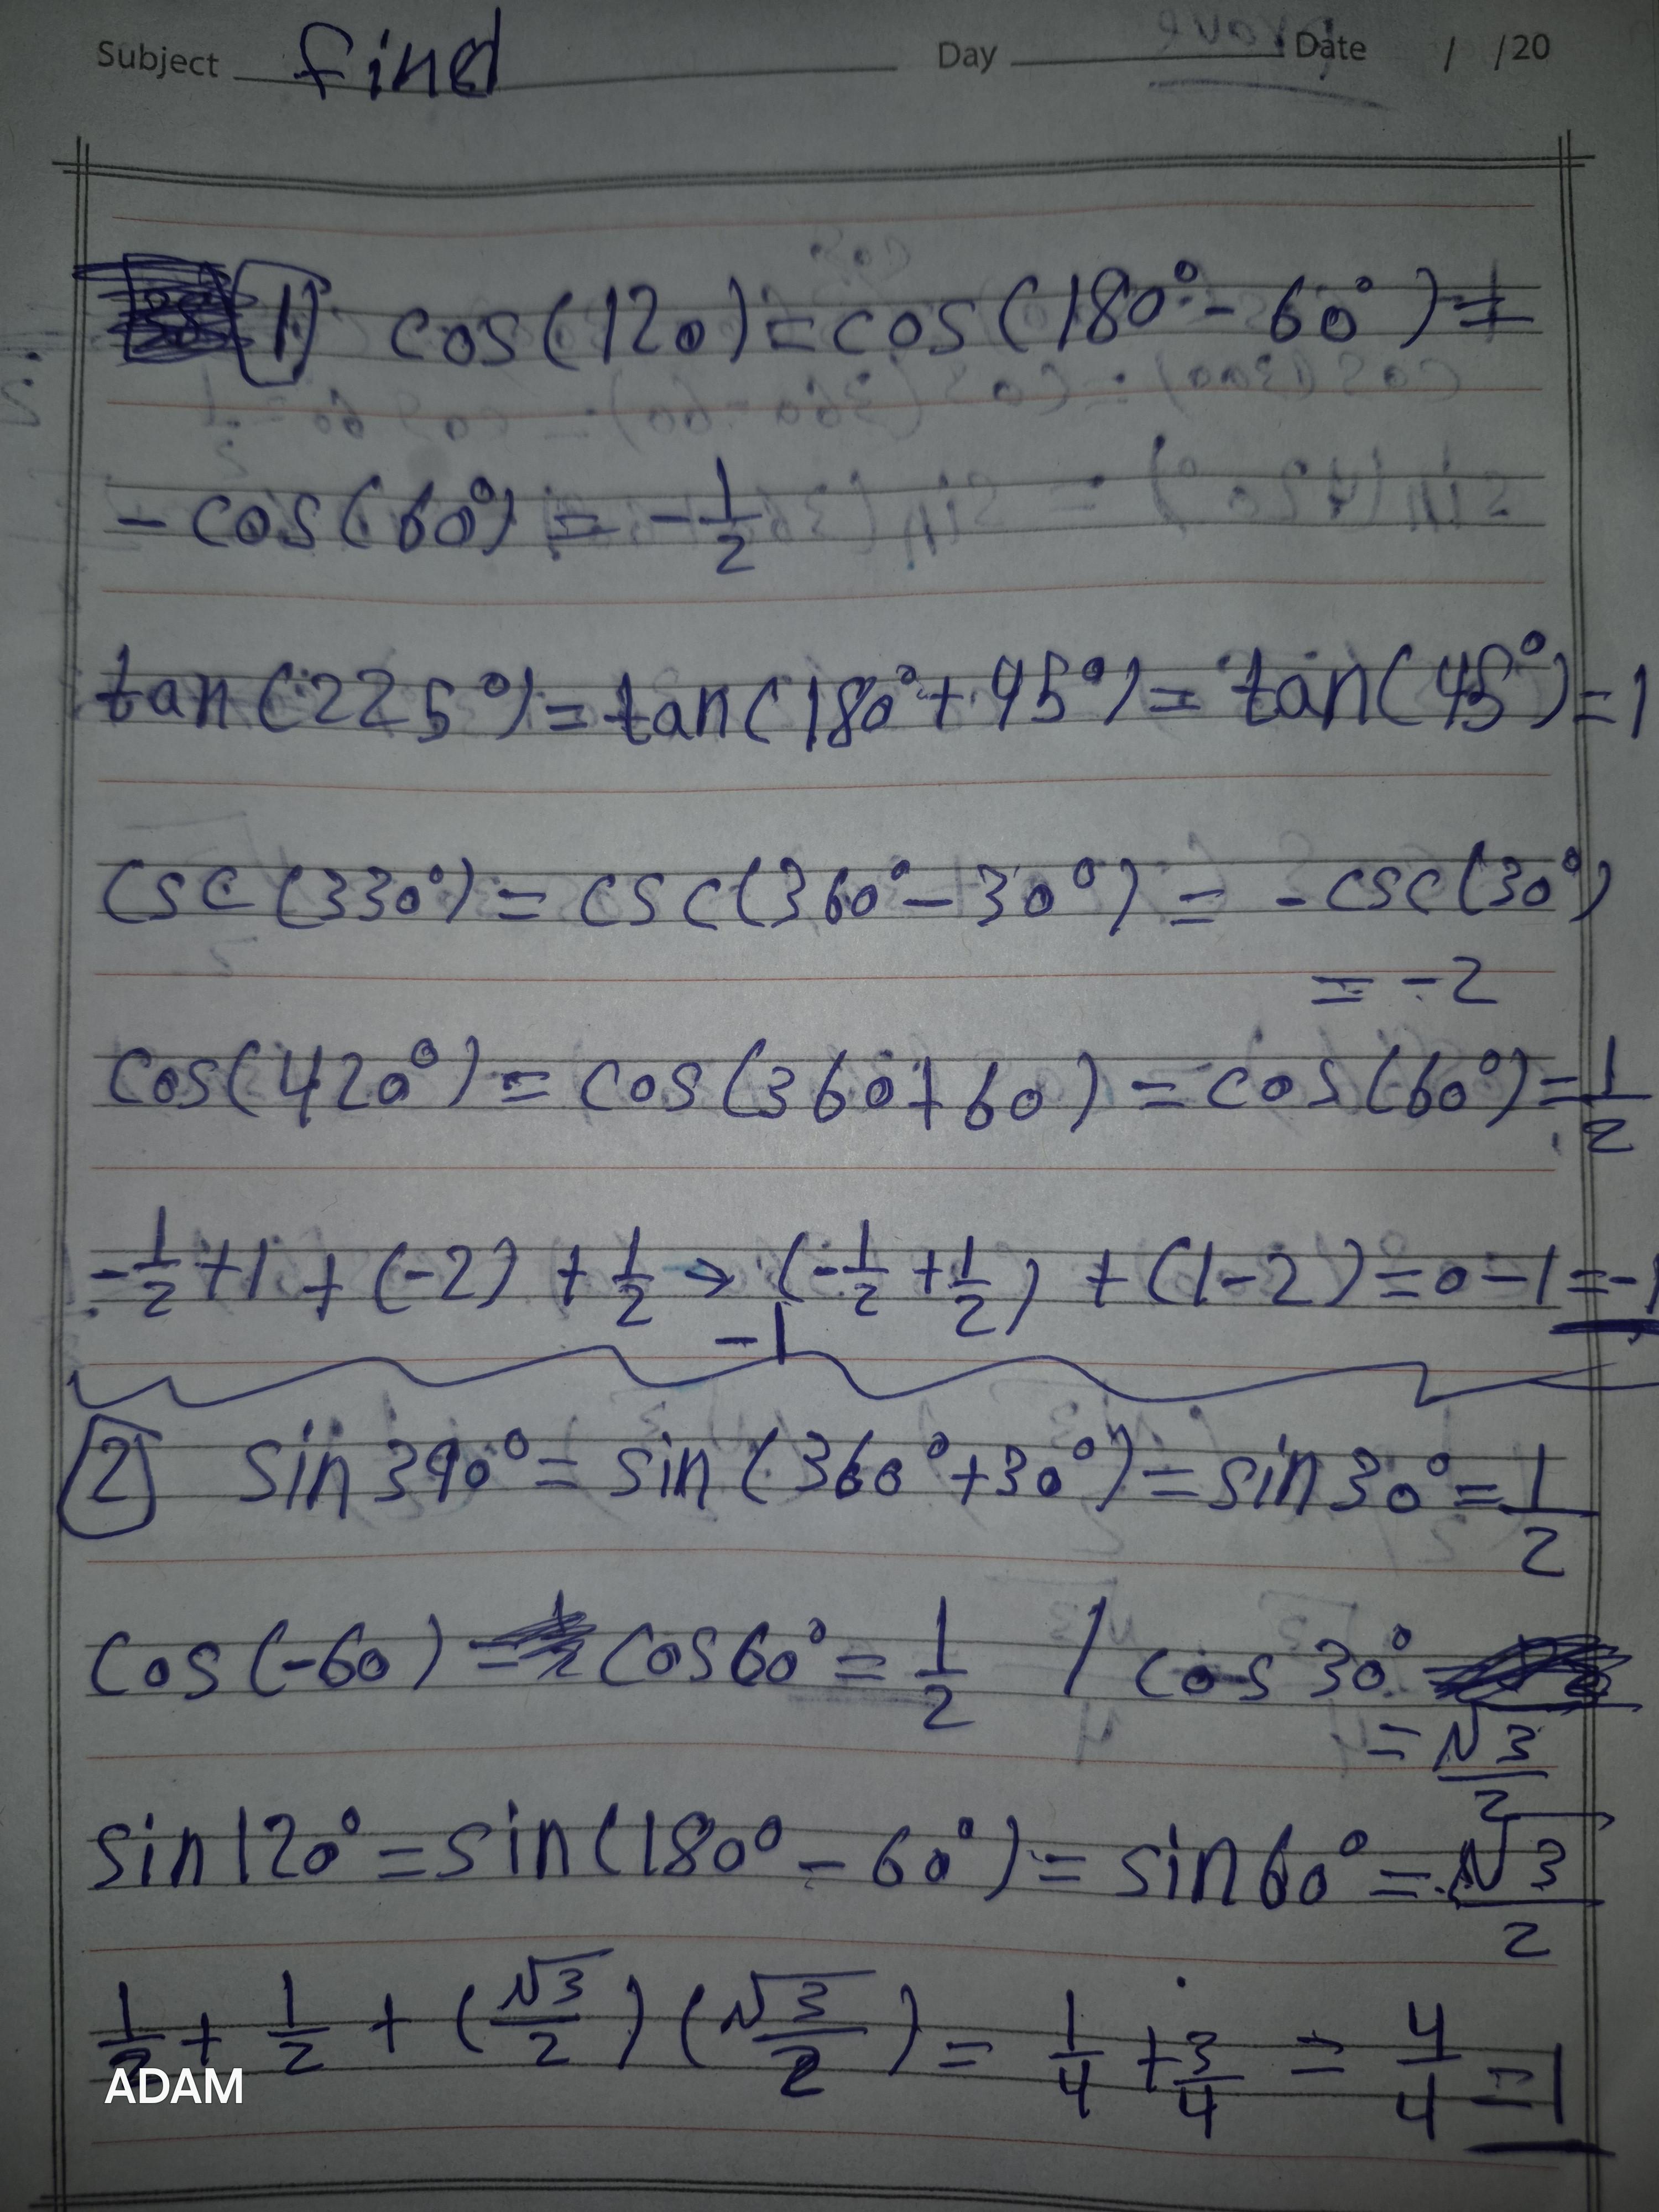 Subject find Day Date / /20
1) cos(120) = cos(180° - 60°) =
- cos(60°) = - 1/2
tan(225°) = tan(180° + 45°) = tan(45°) = 1
csc(330°) = csc(360° - 30°) = - csc(30°)
= -2
cos(420°) = cos(360 + 60) = cos(60°) = 1/2
- 1/2 + 1 + (-2) + 1/2 → (- 1/2 + 1/2) + (1 - 2) = 0 - 1 = -1
-1
2 sin 390° = sin(360° + 30°) = sin 30° = 1/2
cos(-60) = cos 60° = 1/2 / cos 30°
= √3/2
sin 120° = sin(180° - 60°) = sin 60° = √3/2
1/2 + 1/2 + (√3/2)(√3/2) = 1/4 + 3/4 = 4/4 = 1
ADAM